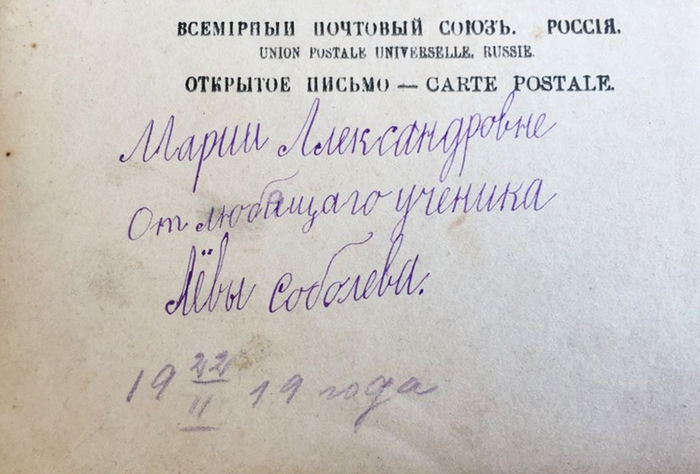 ВСЕМІРНЫЙ ПОЧТОВЫЙ СОЮЗЪ. РОССІЯ.
UNION POSTALE UNIVERSELLE. RUSSIE.
ОТКРЫТОЕ ПИСЬМО — CARTE POSTALE.
Марии Александровне
От любящаго ученика
Лёвы Соболева.
19 22/II 19 года